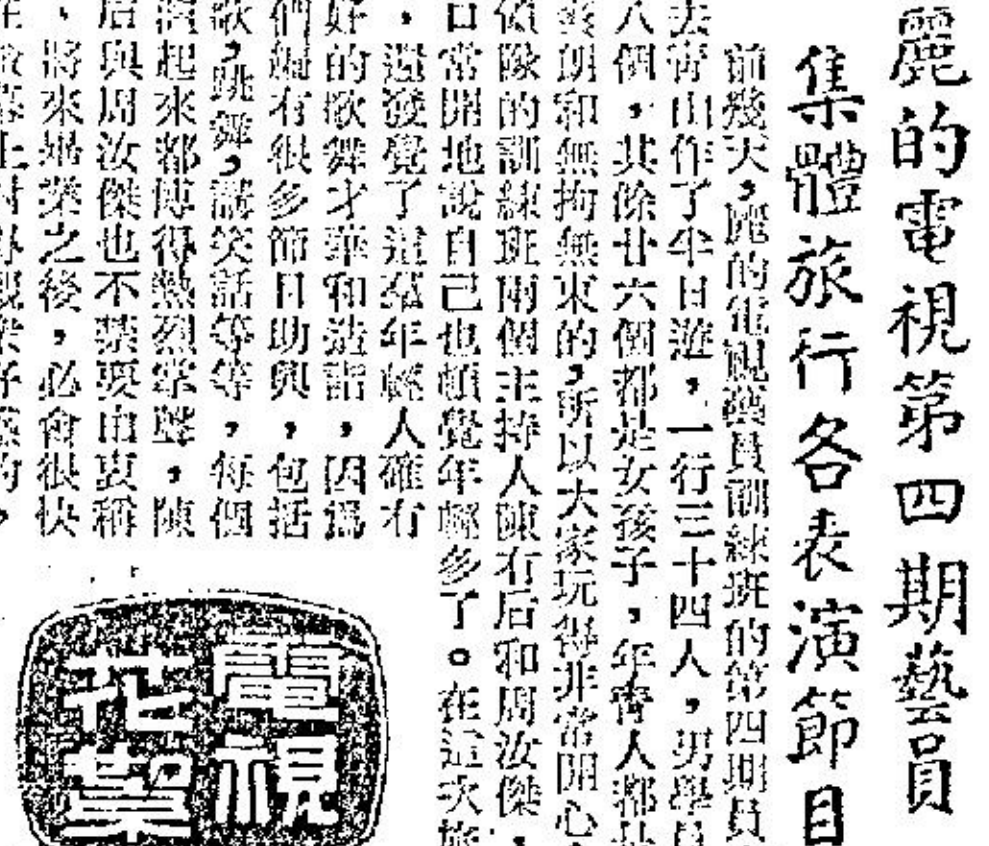 麗的電視第四期藝員
集體旅行各表演節目
前幾天，麗的電視藝員訓練班的第四期員
去青山作了半日遊，一行三十四人，男學員
八個，其餘廿六個都是女孩子，年青人都
爽朗和無拘無束的，所以大家玩得非常開心
領隊的訓練班兩個主持人陳有后和周汝傑，
日常開地說自己也頓覺年輕多了。在這次旅
，還發覺了這羣年輕人確有
好的歌舞才華和造詣，因爲
們編有很多節目助興，包括
歌，跳舞，講笑話等等，每個
演起來都博得熱烈掌聲。陳
后與周汝傑也不禁要由衷稱
，將來畢業之後，必會很快
電視
花絮